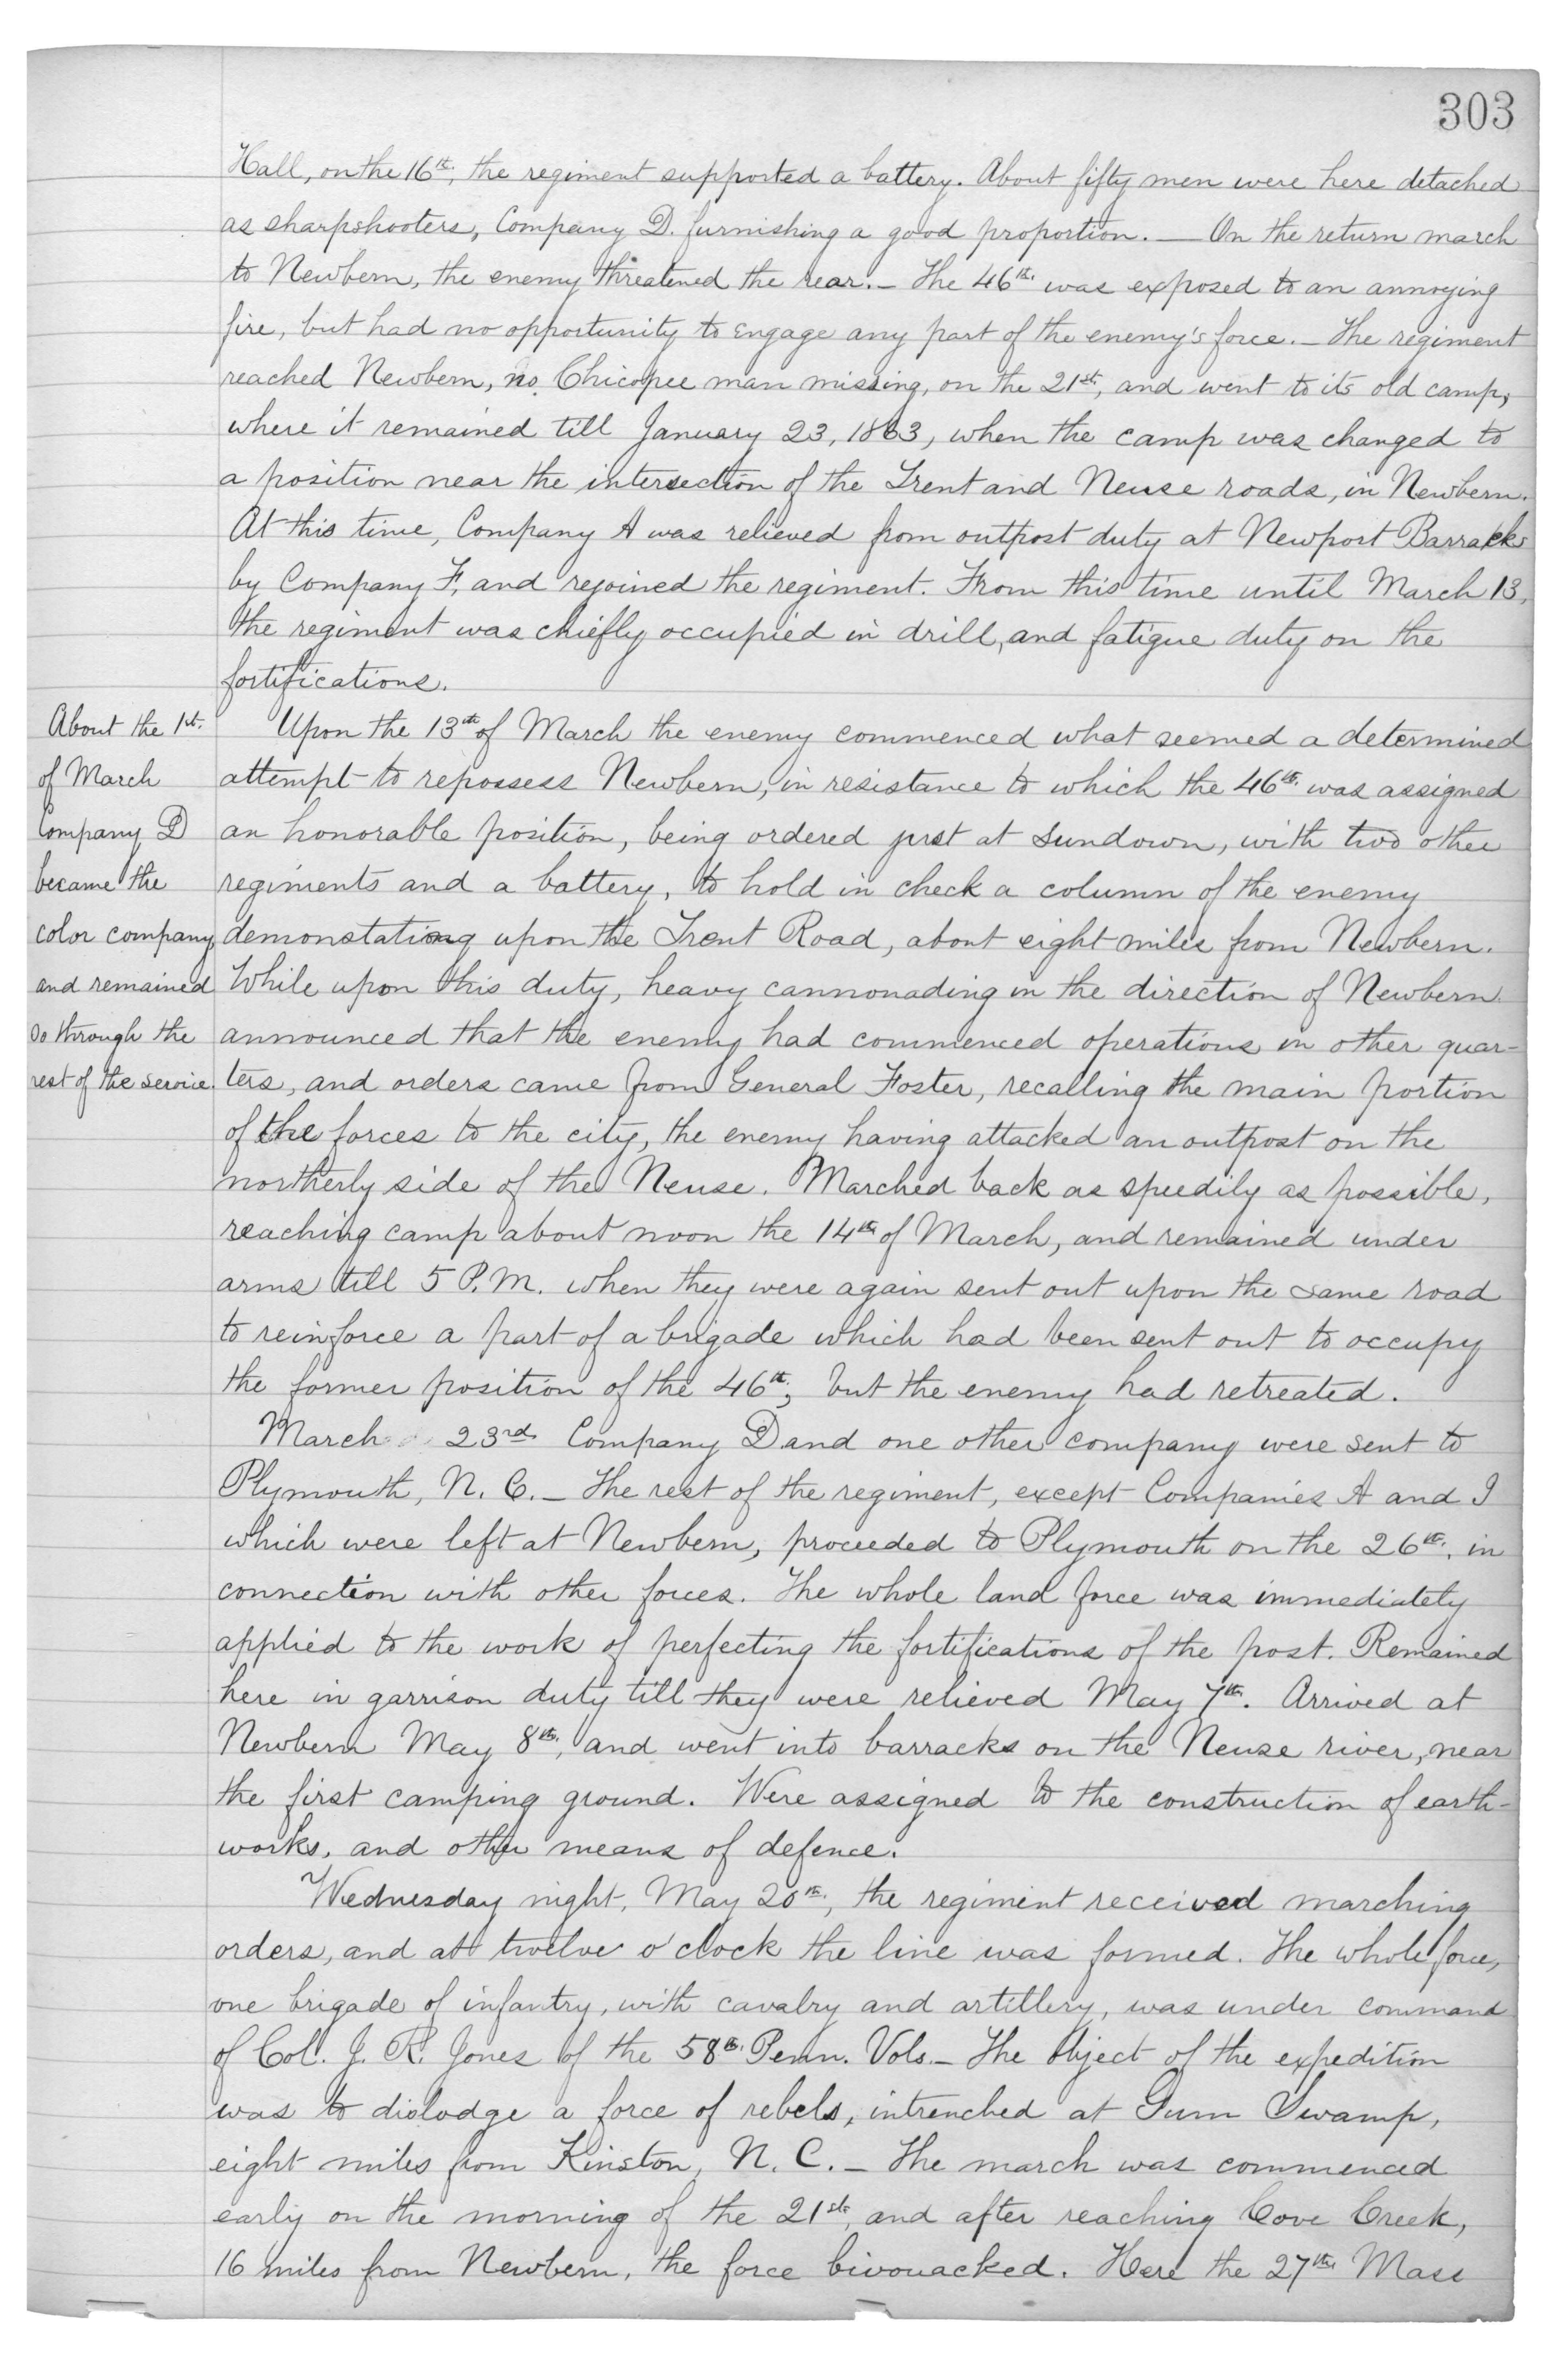 303
Hall, on the 16th, the regiment supported a battery. About fifty men were here detached
as sharpshooters, Company D. furnishing a good proportion. — On the return march
to Newbern, the enemy threatened the rear. — The 46th was exposed to an annoying
fire, but had no opportunity to engage any part of the enemy's force. — The regiment
reached Newbern, no Chicopee man missing, on the 21st, and went to its old camp,
where it remained till January 23, 1863, when the camp was changed to
a position near the intersection of the Trent and Neuse roads, in Newbern.
At this time, Company A was relieved from outpost duty at Newport Barracks
by Company F, and rejoined the regiment. From this time until March 13,
the regiment was chiefly occupied in drill, and fatigue duty on the
fortifications.
About the 1st.
of March
Company D
became the
color company,
and remained
so through the
rest of the service.
Upon the 13th of March the enemy commenced what seemed a determined
attempt to repossess Newbern, in resistance to which the 46th was assigned
an honorable position, being ordered just at sundown, with two other
regiments and a battery, to hold in check a column of the enemy
demonstating upon the Trent Road, about eight miles from Newbern.
While upon this duty, heavy cannonading in the direction of Newbern
announced that the enemy had commenced operations in other quar-
ters, and orders came from General Foster, recalling the main portion
of the forces to the city, the enemy having attacked an outpost on the
northerly side of the Neuse. Marched back as speedily as possible,
reaching camp about noon the 14th of March, and remained under
arms till 5 P.M. when they were again sent out upon the same road
to reinforce a part of a brigade which had been sent out to occupy
the former position of the 46th, but the enemy had retreated.
March 23rd Company D and one other company were sent to
Plymouth, N. C. — The rest of the regiment, except Companies A and I
which were left at Newbern, proceeded to Plymouth on the 26th, in
connection with other forces. The whole land force was immediately
applied to the work of perfecting the fortifications of the post. Remained
here in garrison duty till they were relieved May 7th. Arrived at
Newbern May 8th, and went into barracks on the Neuse river, near
the first camping ground. Were assigned to the construction of earth-
works, and other means of defence.
Wednesday night, May 20th, the regiment received marching
orders, and at twelve o'clock the line was formed. The whole force,
one brigade of infantry, with cavalry and artillery, was under command
of Col. J. R. Jones of the 58th Penn. Vols. — The object of the expedition
was to dislodge a force of rebels, intrenched at Gum Swamp,
eight miles from Kinston, N. C. — The march was commenced
early on the morning of the 21st, and after reaching Cove Creek,
16 miles from Newbern, the force bivouacked. Here the 27th Mass